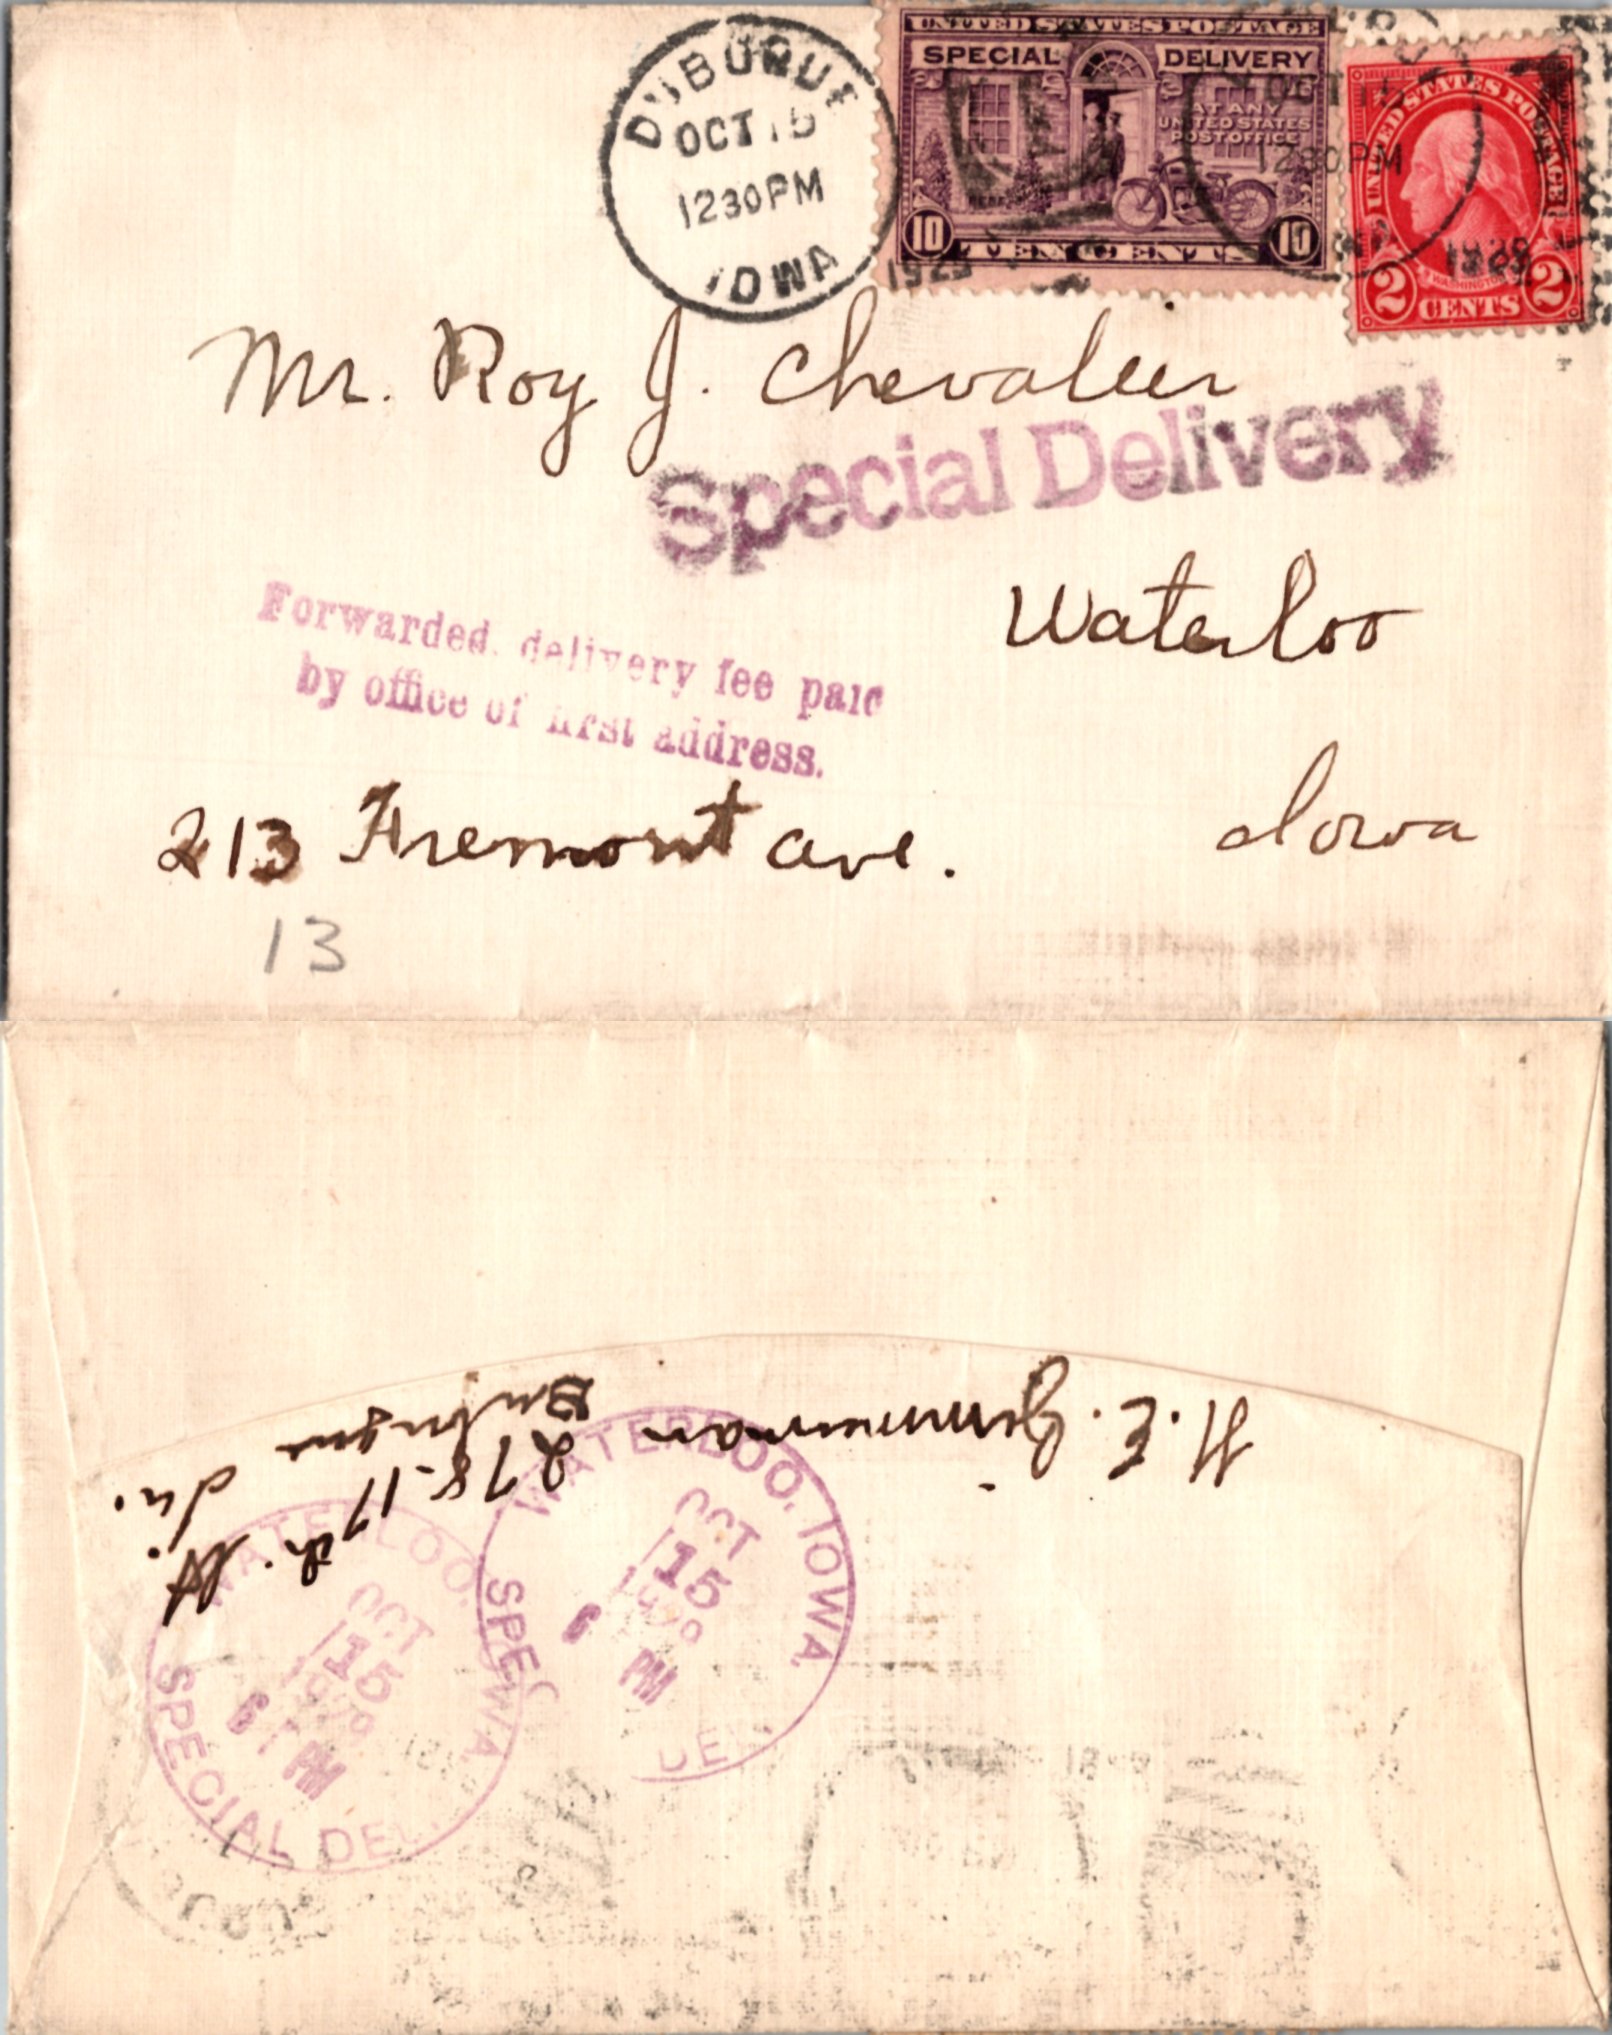 DUBUQUE
OCT 15
1230PM
IOWA
UNITED STATES POSTAGE
SPECIAL DELIVERY
AT ANY
UNITED STATES
POST OFFICE
10 TEN CENTS 10
UNITED STATES POSTAGE
1230PM
WASHINGTON
2 CENTS 2
Mr. Roy J. Chevalier
Special Delivery
Waterloo
Forwarded. delivery fee paid
by office of first address.
213 Fremont ave.
Iowa
13
H. E.
Dubuque Ia.
278-17th St.
WATERLOO, IOWA.
OCT
15
6 PM
SPECIAL DEL.
WATERLOO, IOWA.
OCT
15
6 PM
SPECIAL DEL.